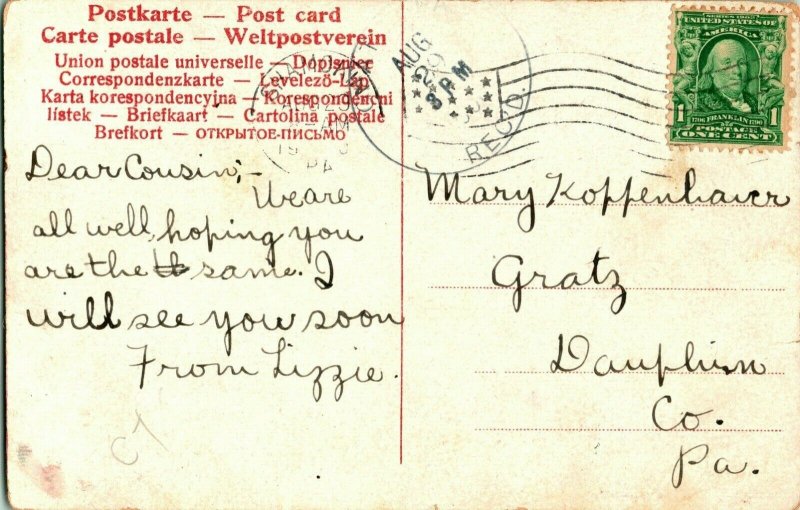 Postkarte — Post card
Carte postale — Weltpostverein
Union postale universelle — Dopisnice
Correspondenzkarte — Levelező-Lap
Karta korespondencyjna — Korespondenční
lístek — Briefkaart — Cartolina postale
Brefkort — ОТКРЫТОЕ-ПИСЬМО
AUG
29
8 PM
REC'D.
SERIES 1902
UNITED STATES OF
AMERICA
1706 FRANKLIN 1790
POSTAGE
1 ONE CENT 1
Dear Cousin;-
We are
all well, hoping you
are the same. I
will see you soon
From Lizzie.
C7
Mary Koppenhaver
Gratz
Dauphin
Co.
Pa.